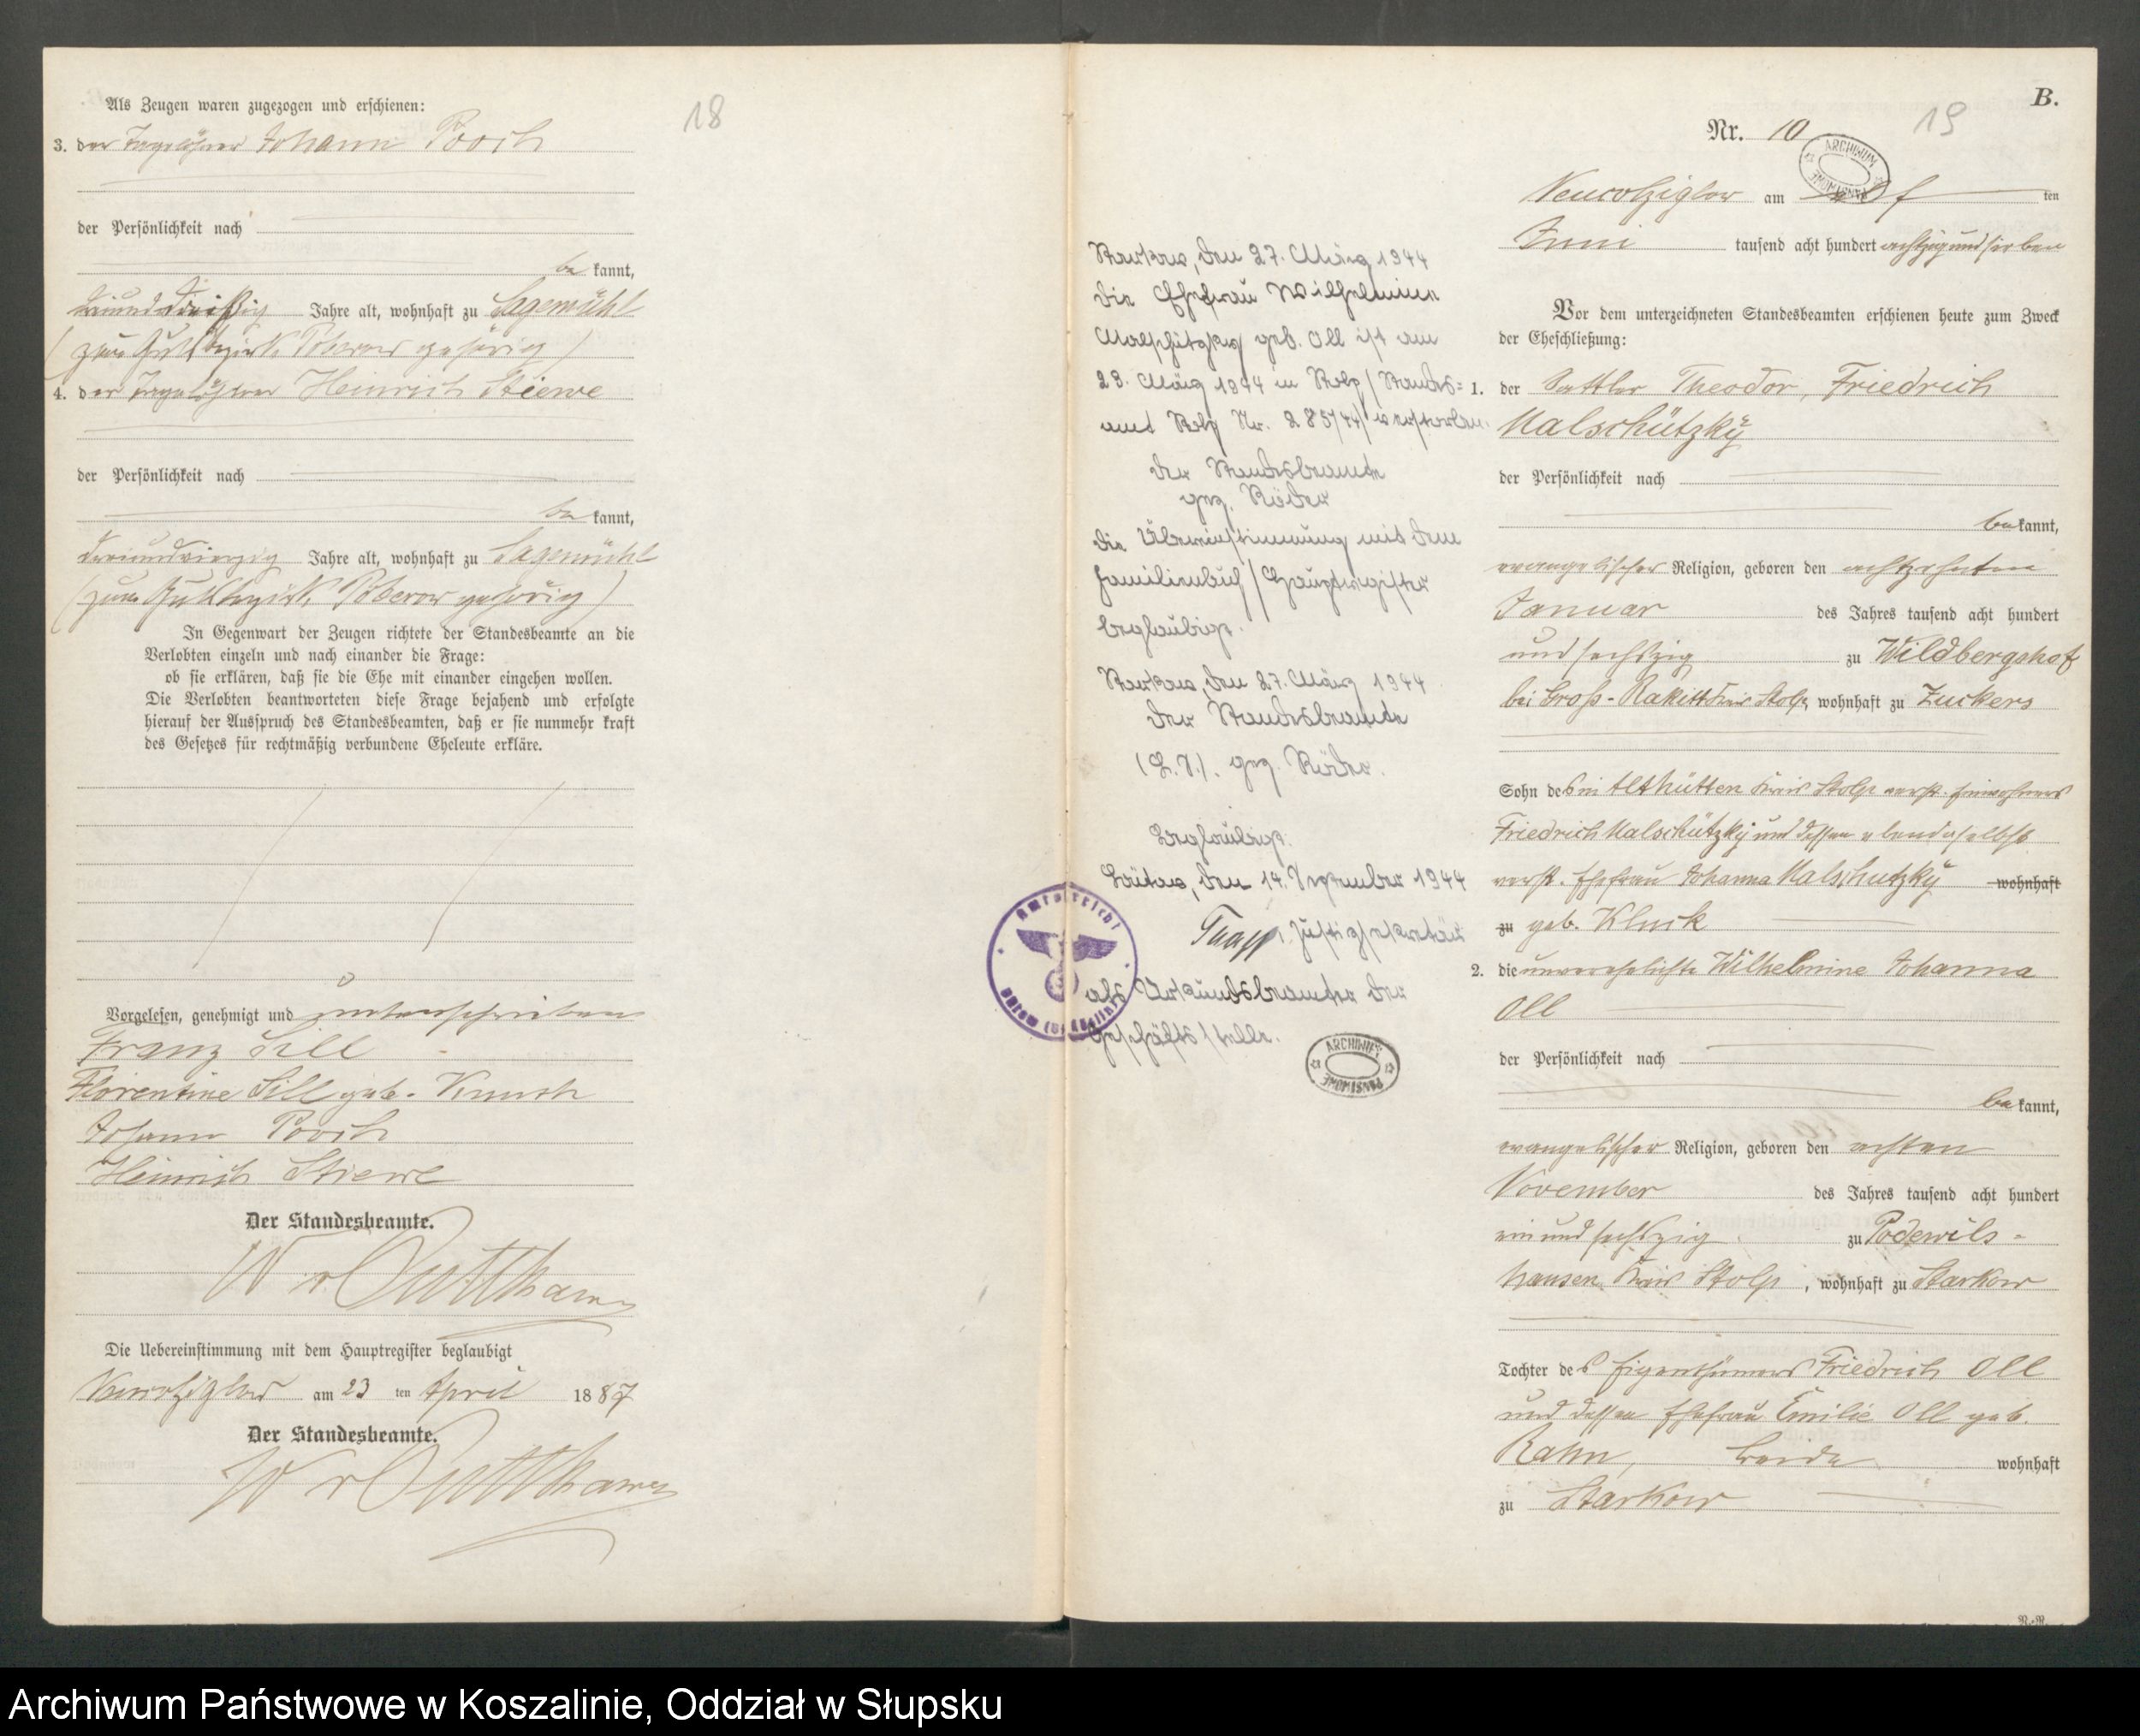 18
Als Zeugen waren zugezogen und erschienen:
3. der Tagelöhner Johann Pooch
der Persönlichkeit nach
be kannt,
dreiunddreißig Jahre alt, wohnhaft zu Sagemühl
(zum Gutsbezirk Poberow gehörig)
4. der Tagelöhner Heinrich Stiewe
der Persönlichkeit nach
be kannt,
dreiundvierzig Jahre alt, wohnhaft zu Sagemühl
(zum Gutsbezirk Poberow gehörig)
In Gegenwart der Zeugen richtete der Standesbeamte an die
Verlobten einzeln und nach einander die Frage:
ob sie erklären, daß sie die Ehe mit einander eingehen wollen.
Die Verlobten beantworteten diese Frage bejahend und erfolgte
hierauf der Ausspruch des Standesbeamten, daß er sie nunmehr kraft
des Gesetzes für rechtmäßig verbundene Eheleute erkläre.
Vorgelesen, genehmigt und unterschrieben
Franz Sill
Florentine Sill geb. Kunth
Johann Pooch
Heinrich Stiewe
Der Standesbeamte.
W v Puttkamer
Die Uebereinstimmung mit dem Hauptregister beglaubigt
Neurohziglow am 23 ten April 1887
Der Standesbeamte.
W v Puttkamer
Starkow, den 27. März 1944
Die Ehefrau Wilhelmine
Malschützky geb. Oll ist am
23. März 1944 in Stolp (Standes=
amt Stolp Nr. 285/44) verstorben.
Der Standesbeamte
gez. Röder
Die Übereinstimmung mit dem
Familienbuch/Hauptregister
beglaubigt.
Starkow, den 27. März 1944
Der Standesbeamte
(L.S.). gez. Röder.
Beglaubigt.
Bütow, den 14. September 1944
Justizsekretär
als Urkundsbeamter der
Geschäftsstelle.
Amtsgericht
ARCHIWUM
PAŃSTWOWE
B.
19
Nr. 10
ARCHIWUM
PAŃSTWOWE
Neurohziglow am elf ten
Juni tausend acht hundert achtzig und sieben
Vor dem unterzeichneten Standesbeamten erschienen heute zum Zweck
der Eheschließung:
1. der Sattler Theodor, Friedrich
Malschützky
der Persönlichkeit nach
be kannt,
evangelischer Religion, geboren den achtzehnten
Januar des Jahres tausend acht hundert
und sechszig zu Wildbergshof
bei Groß-Rakitt Kreis Stolp, wohnhaft zu Zuckers
Sohn des in Althütten Kreis Stolp verst. Einwohners
Friedrich Malschützky und dessen ebendaselbst
verst. Ehefrau Johanna Malschutzky wohnhaft
zu geb. Kluck
2. die unverehelichte Wilhelmine Johanna
Oll
der Persönlichkeit nach
be kannt,
evangelischer Religion, geboren den achten
November des Jahres tausend acht hundert
ein und sechszig zu Podewils-
hausen Kreis Stolp, wohnhaft zu Starkow
Tochter des Eigenthümers Friedrich Oll
und dessen Ehefrau Emilie Oll geb.
Rahn, beide wohnhaft
zu Starkow
Archiwum Państwowe w Koszalinie, Oddział w Słupsku